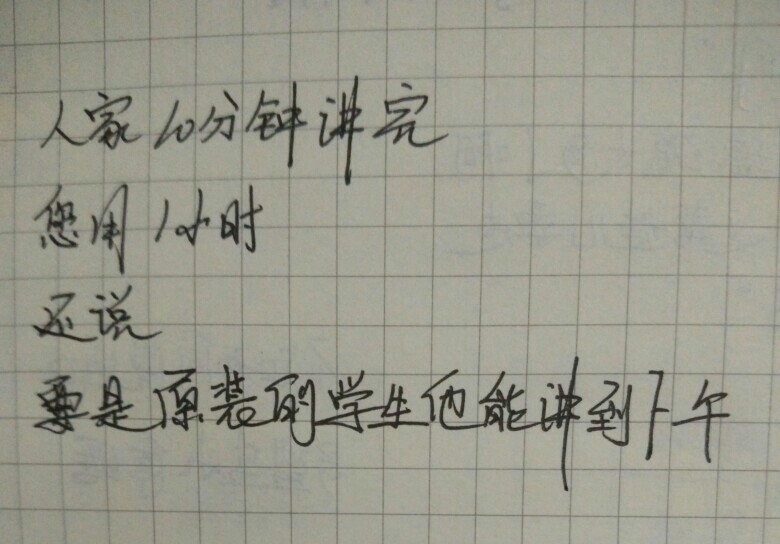 人家10分钟讲完
您用1小时
还说
要是原装的学生他能讲到下午